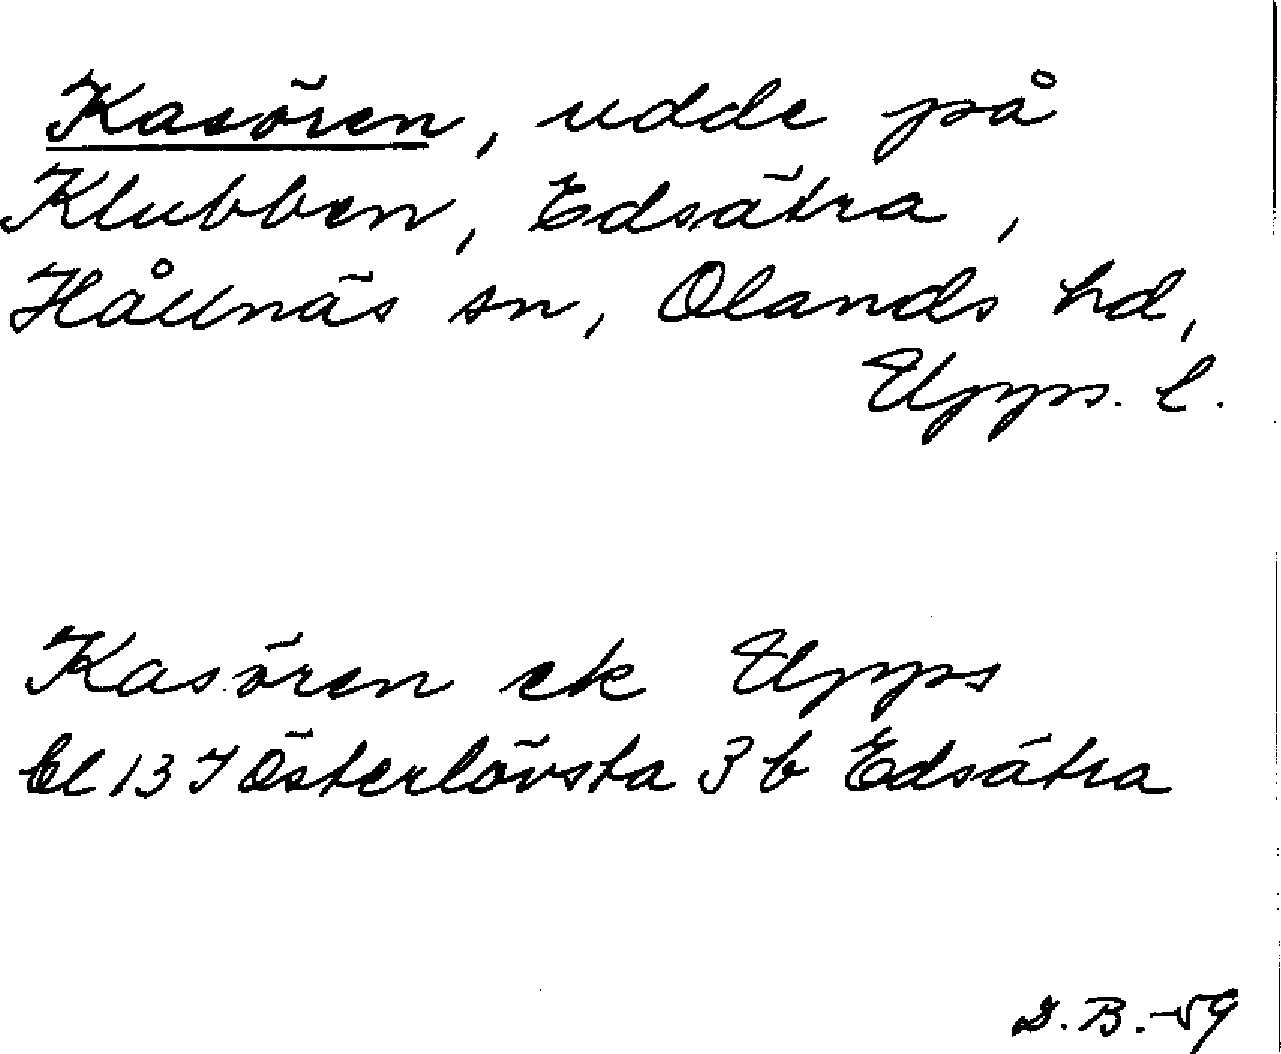 Kasören, udde på
Klubben, Edsätra,
Hållnäs sn, Olands hd,
Upps. l.
Kasören ek Upps
bl 13 I Österlövsta 3 b Edsätra
D.B.-59